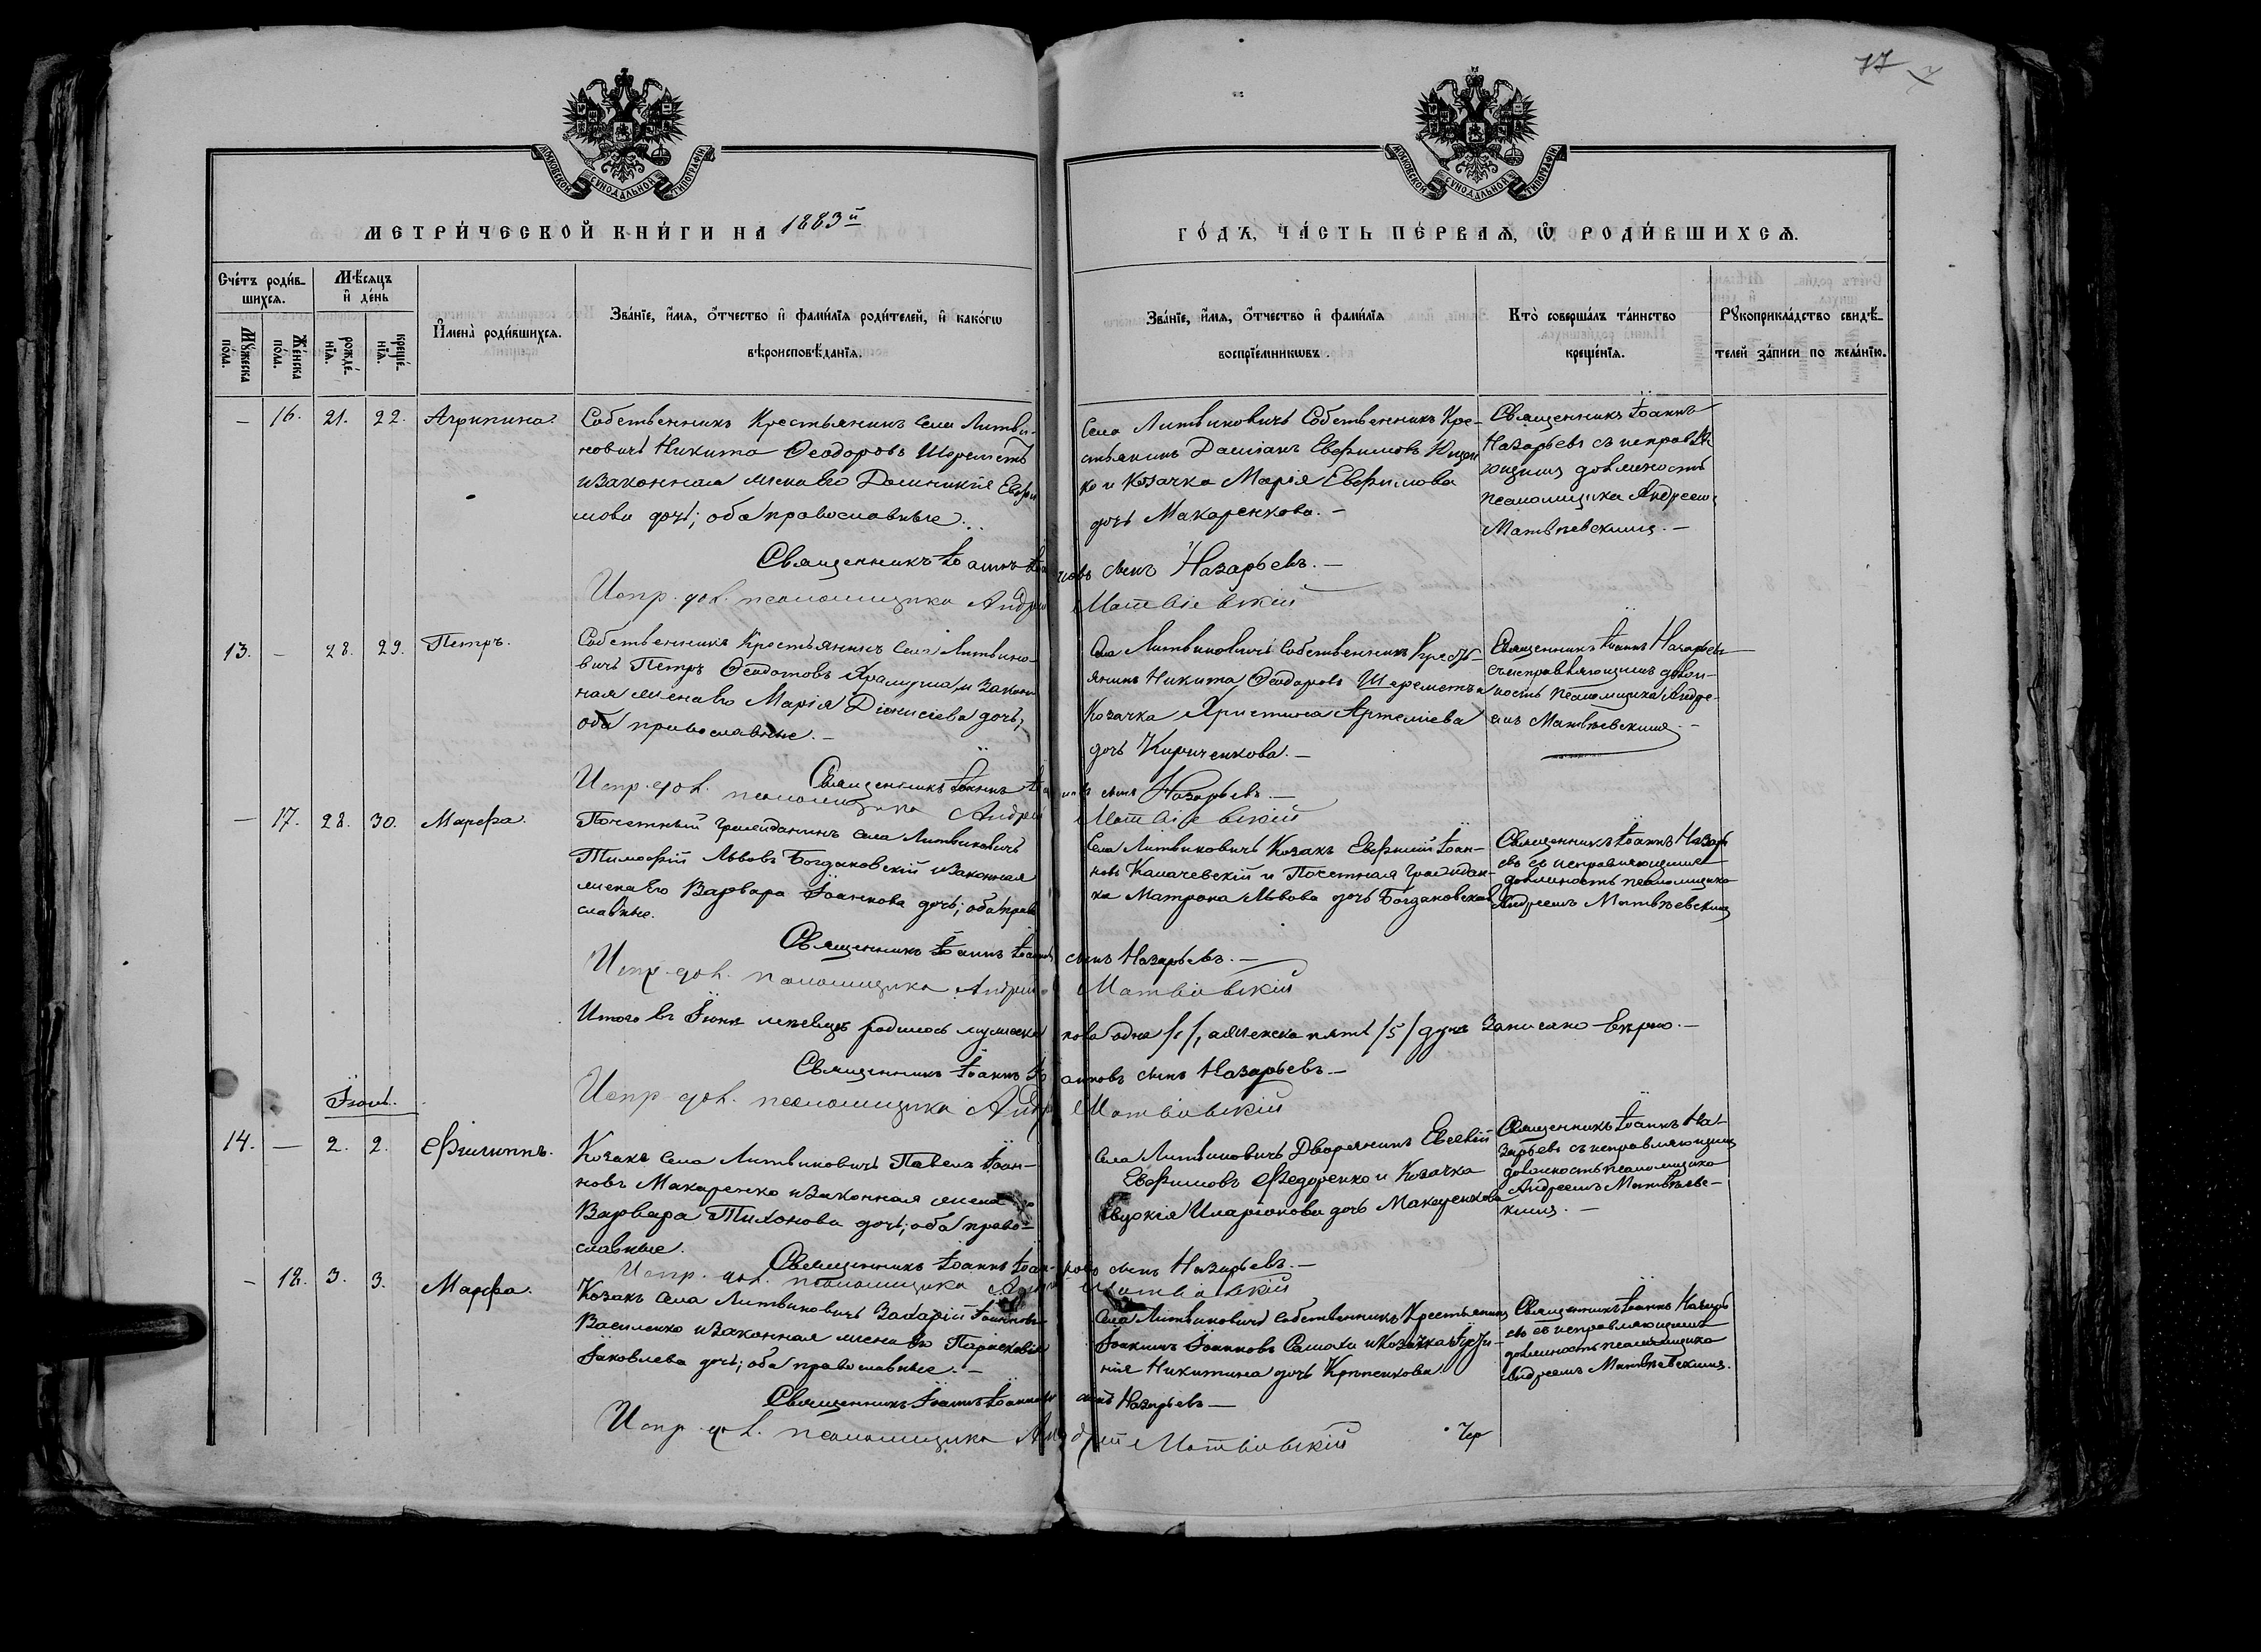 77
МОСКОВСКОЙ СѴНОДАЛЬНОЙ ТИПОГРАФІИ
МОСКОВСКОЙ СѴНОДАЛЬНОЙ ТИПОГРАФІИ
МЕТРИ́ЧЕСКОЙ КНИ́ГИ НА 1883й
ГО́ДЪ, ЧА́СТЬ ПЕ́РВАѦ, Ѿ РОДИ́ВШИХСѦ.
Сче́тъ роди́в-
шихсѧ.
Мѣ́сѧцъ
и де́нь
Мꙋ́жеска по́ла.
Же́нска по́ла.
рожде́-нїѧ.
креще́-нїѧ.
Имена̀ роди́вшихсѧ.
Зва́нїе, и́мѧ, о́тчество и фами́лїѧ роди́телей, и како́гѡ
вѣроисповѣ́данїѧ.
Зва́нїе, и́мѧ, о́тчество и фами́лїѧ
воспрїе́мникѡвъ.
Кто̀ соверша́лъ та́инство
креще́нїѧ.
Рꙋкоприкла́дство свидѣ́-
телей за́писи по жела́нїю.
— 16. 21. 22. Агрипина.
Собственникъ Крестьянинъ села Литви-
новичъ Никита Ѳеодоровъ Шереметъ
и законная жена его Домникія Евфи
мова дочь; оба православные.
Села Литвиновичъ Собственникъ Кре-
стьянинъ Даміанъ Евфимовъ
ко и Козачка Марія Евфимова
дочь Макаренкова. —
Священникъ Іоаннъ
Назарьевъ съ исправля
ющимъ должность
псаломщика Андреемъ
Матвѣевскимъ. —
Священникъ Іоаннъ Іоанновъ сынъ Назарьевъ. —
Испр. дол. псаломщика Андрей Матвіевскій
13. — 28. 29. Петръ.
Собственникъ Крестьянинъ Села Литвино-
вичъ Петръ Ѳеодотовъ Храпуша, и закон
ная жена его Марія Діонисіева дочь;
оба православные. —
Села Литвиновичъ Собственникъ Кресть-
янинъ Никита Ѳеодоровъ Шереметъ и
Козачка Христина Артеміева
дочь Кириченкова. —
Священникъ Іоаннъ Назарьевъ
съ исправляющимъ долж-
ность псаломщика Андре-
емъ Матвѣевскимъ. —
Священникъ Іоаннъ Іоанновъ сынъ Назарьевъ. —
Испр. дол. псаломщика Андрей Матвіевскій
— 17. 28. 30. Марфа.
Почетный гражданинъ села Литвиновичъ
Тимофій Львовъ Богдановскій и законная
жена его Варвара Іоаннова дочь; оба право
славные.
Села Литвиновичъ Козакъ Евфимій Іоан-
новъ Калачевскій и Почетная граждан-
ка Матрона Львова дочь Богдановская
Священникъ Іоаннъ Назарь
евъ съ исправляющимъ
должность псаломщика
Андреемъ Матвѣевскимъ
Священникъ Іоаннъ Іоанновъ сынъ Назарьевъ. —
Испр. дол. псаломщика Андрей Матвіевскій
Итого въ Іюнѣ мѣсяцѣ родилось мужеска пола одна /1/, а женска пять /5/ душъ Записано вѣрно. —
Священникъ Іоаннъ Іоанновъ сынъ Назарьевъ. —
Испр. дол. псаломщика Андрей Матвіевскій
Іюль.
14. — 2. 2. Филиппъ.
Козакъ Села Литвиновичъ Павелъ Іоан-
новъ Макаренко и законная жена его
Варвара Тихонова дочь; оба право-
славные.
Села Литвиновичъ Дворянинъ Евсевій
Евфимовъ Федоренко и Козачка
Евдокія Иларіонова дочь Макаренкова
Священникъ Іоаннъ На-
зарьевъ съ исправляющимъ
должность псаломщика
Андреемъ Матвѣевс-
кимъ. —
Священникъ Іоаннъ Іоанновъ сынъ Назарьевъ. —
Испр. дол. псаломщика Андрей Матвіевскій
— 18. 3. 3. Марфа.
Козакъ Села Литвиновичъ Захарій Іоанновъ
Василенко и законная жена его Параскевія
Іаковлева дочь; оба православные. —
Села Литвиновичъ Собственникъ Крестьянинъ
Іоакимъ Іоанновъ Самоха и Козачка
Никитина дочь
Священникъ Іоаннъ Назарь
евъ съ исправляющимъ
должность псаломщика
Андреемъ Матвѣевскимъ.
Священникъ Іоаннъ Іоанновъ сынъ Назарьевъ —
Испр. дол. псаломщика Андрей Матвіевскій